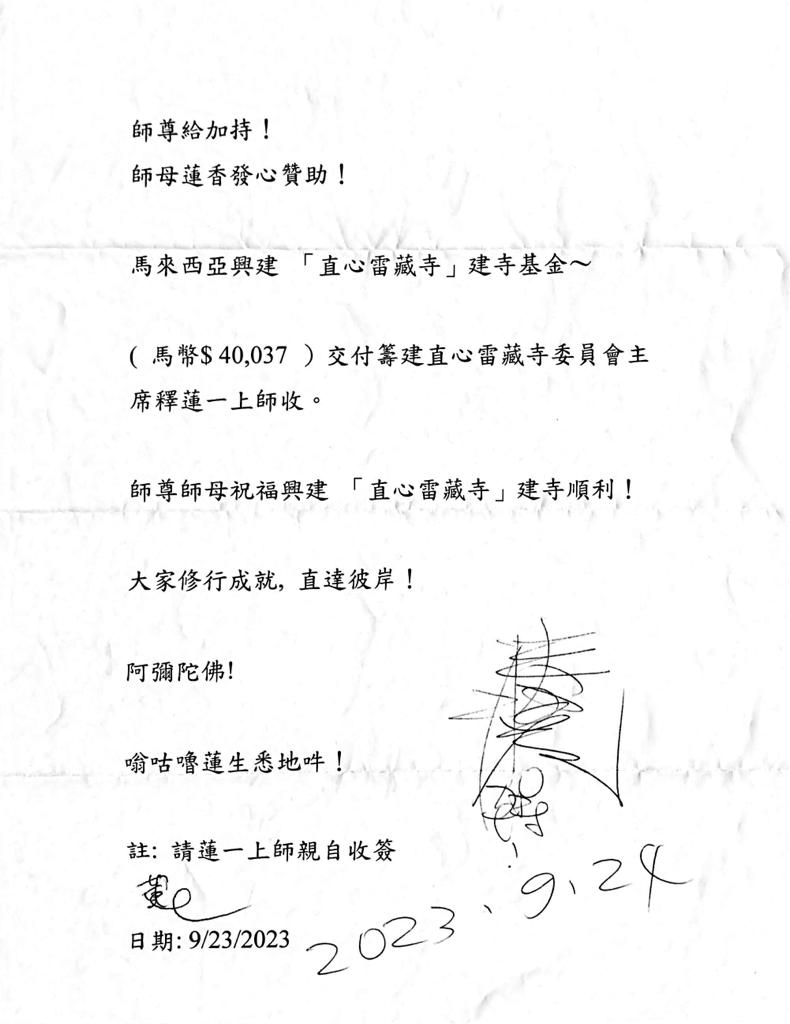 師尊給加持！
師母蓮香發心贊助！
馬來西亞興建 「直心雷藏寺」建寺基金～
( 馬幣$ 40,037 ) 交付籌建直心雷藏寺委員會主
席釋蓮一上師收。
師尊師母祝福興建 「直心雷藏寺」建寺順利！
大家修行成就, 直達彼岸！
阿彌陀佛!
嗡咕嚕蓮生悉地吽！
註: 請蓮一上師親自收簽
日期: 9/23/2023
2023.9.24